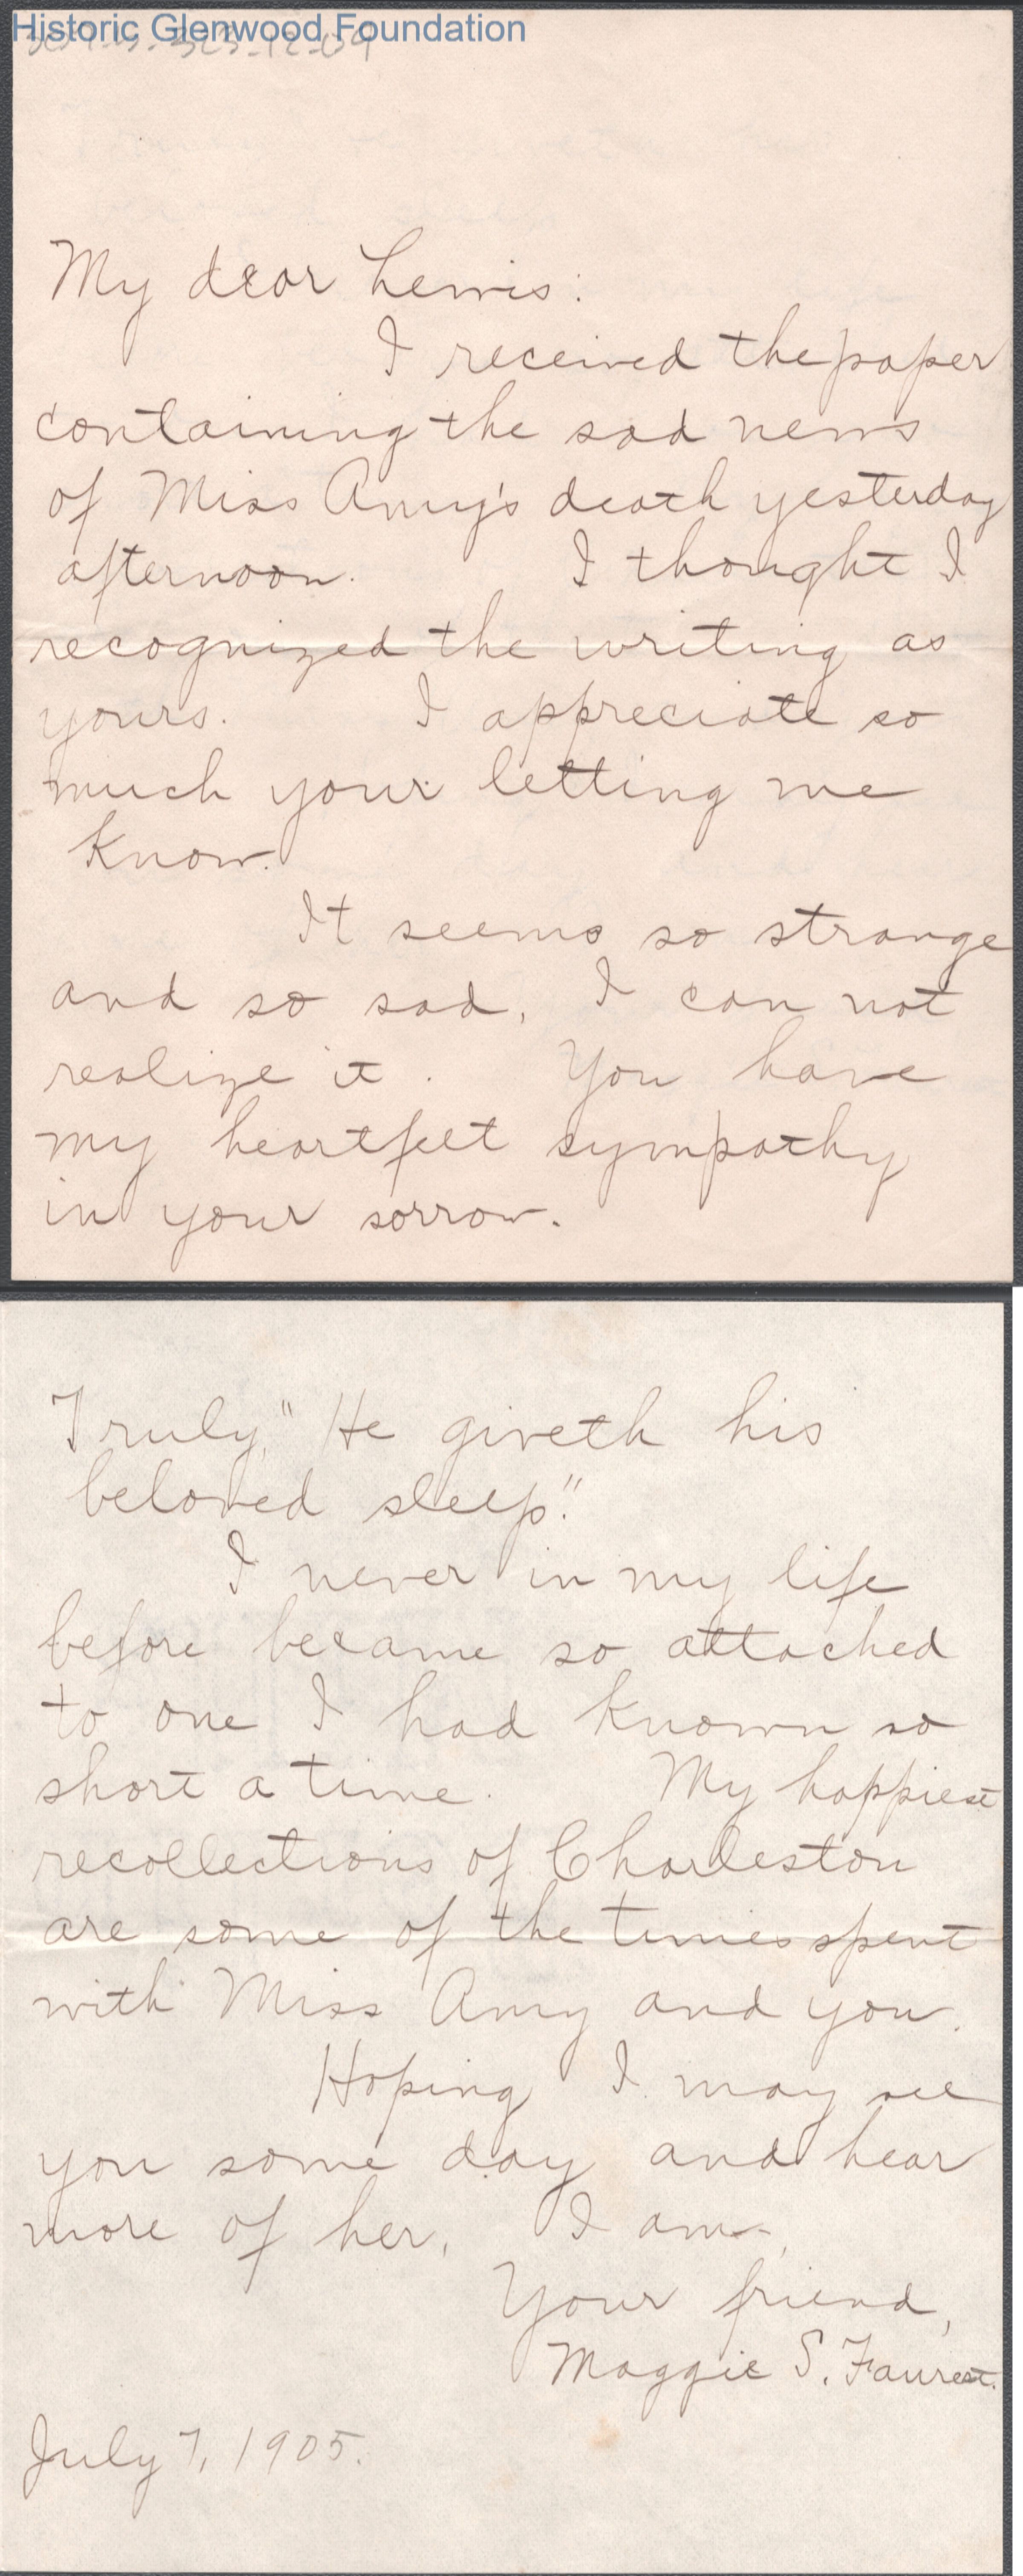 Historic Glenwood Foundation
My dear Lewis:
I received the paper
containing the sad news
of Miss Amy's death yesterday
afternoon. I thought I
recognized the writing as
yours. I appreciate so
much your letting me
know.
It seems so strange
and so sad, I can not
realize it. You have
my heartfelt sympathy
in your sorrow.
Truly, "He giveth his
beloved sleep."
I never in my life
before became so attached
to one I had known so
short a time. My happiest
recollections of Charleston
are some of the times spent
with Miss Amy and you.
Hoping I may see
you some day and hear
more of her, I am,
Your friend,
Maggie S. Faurest.
July 7, 1905.